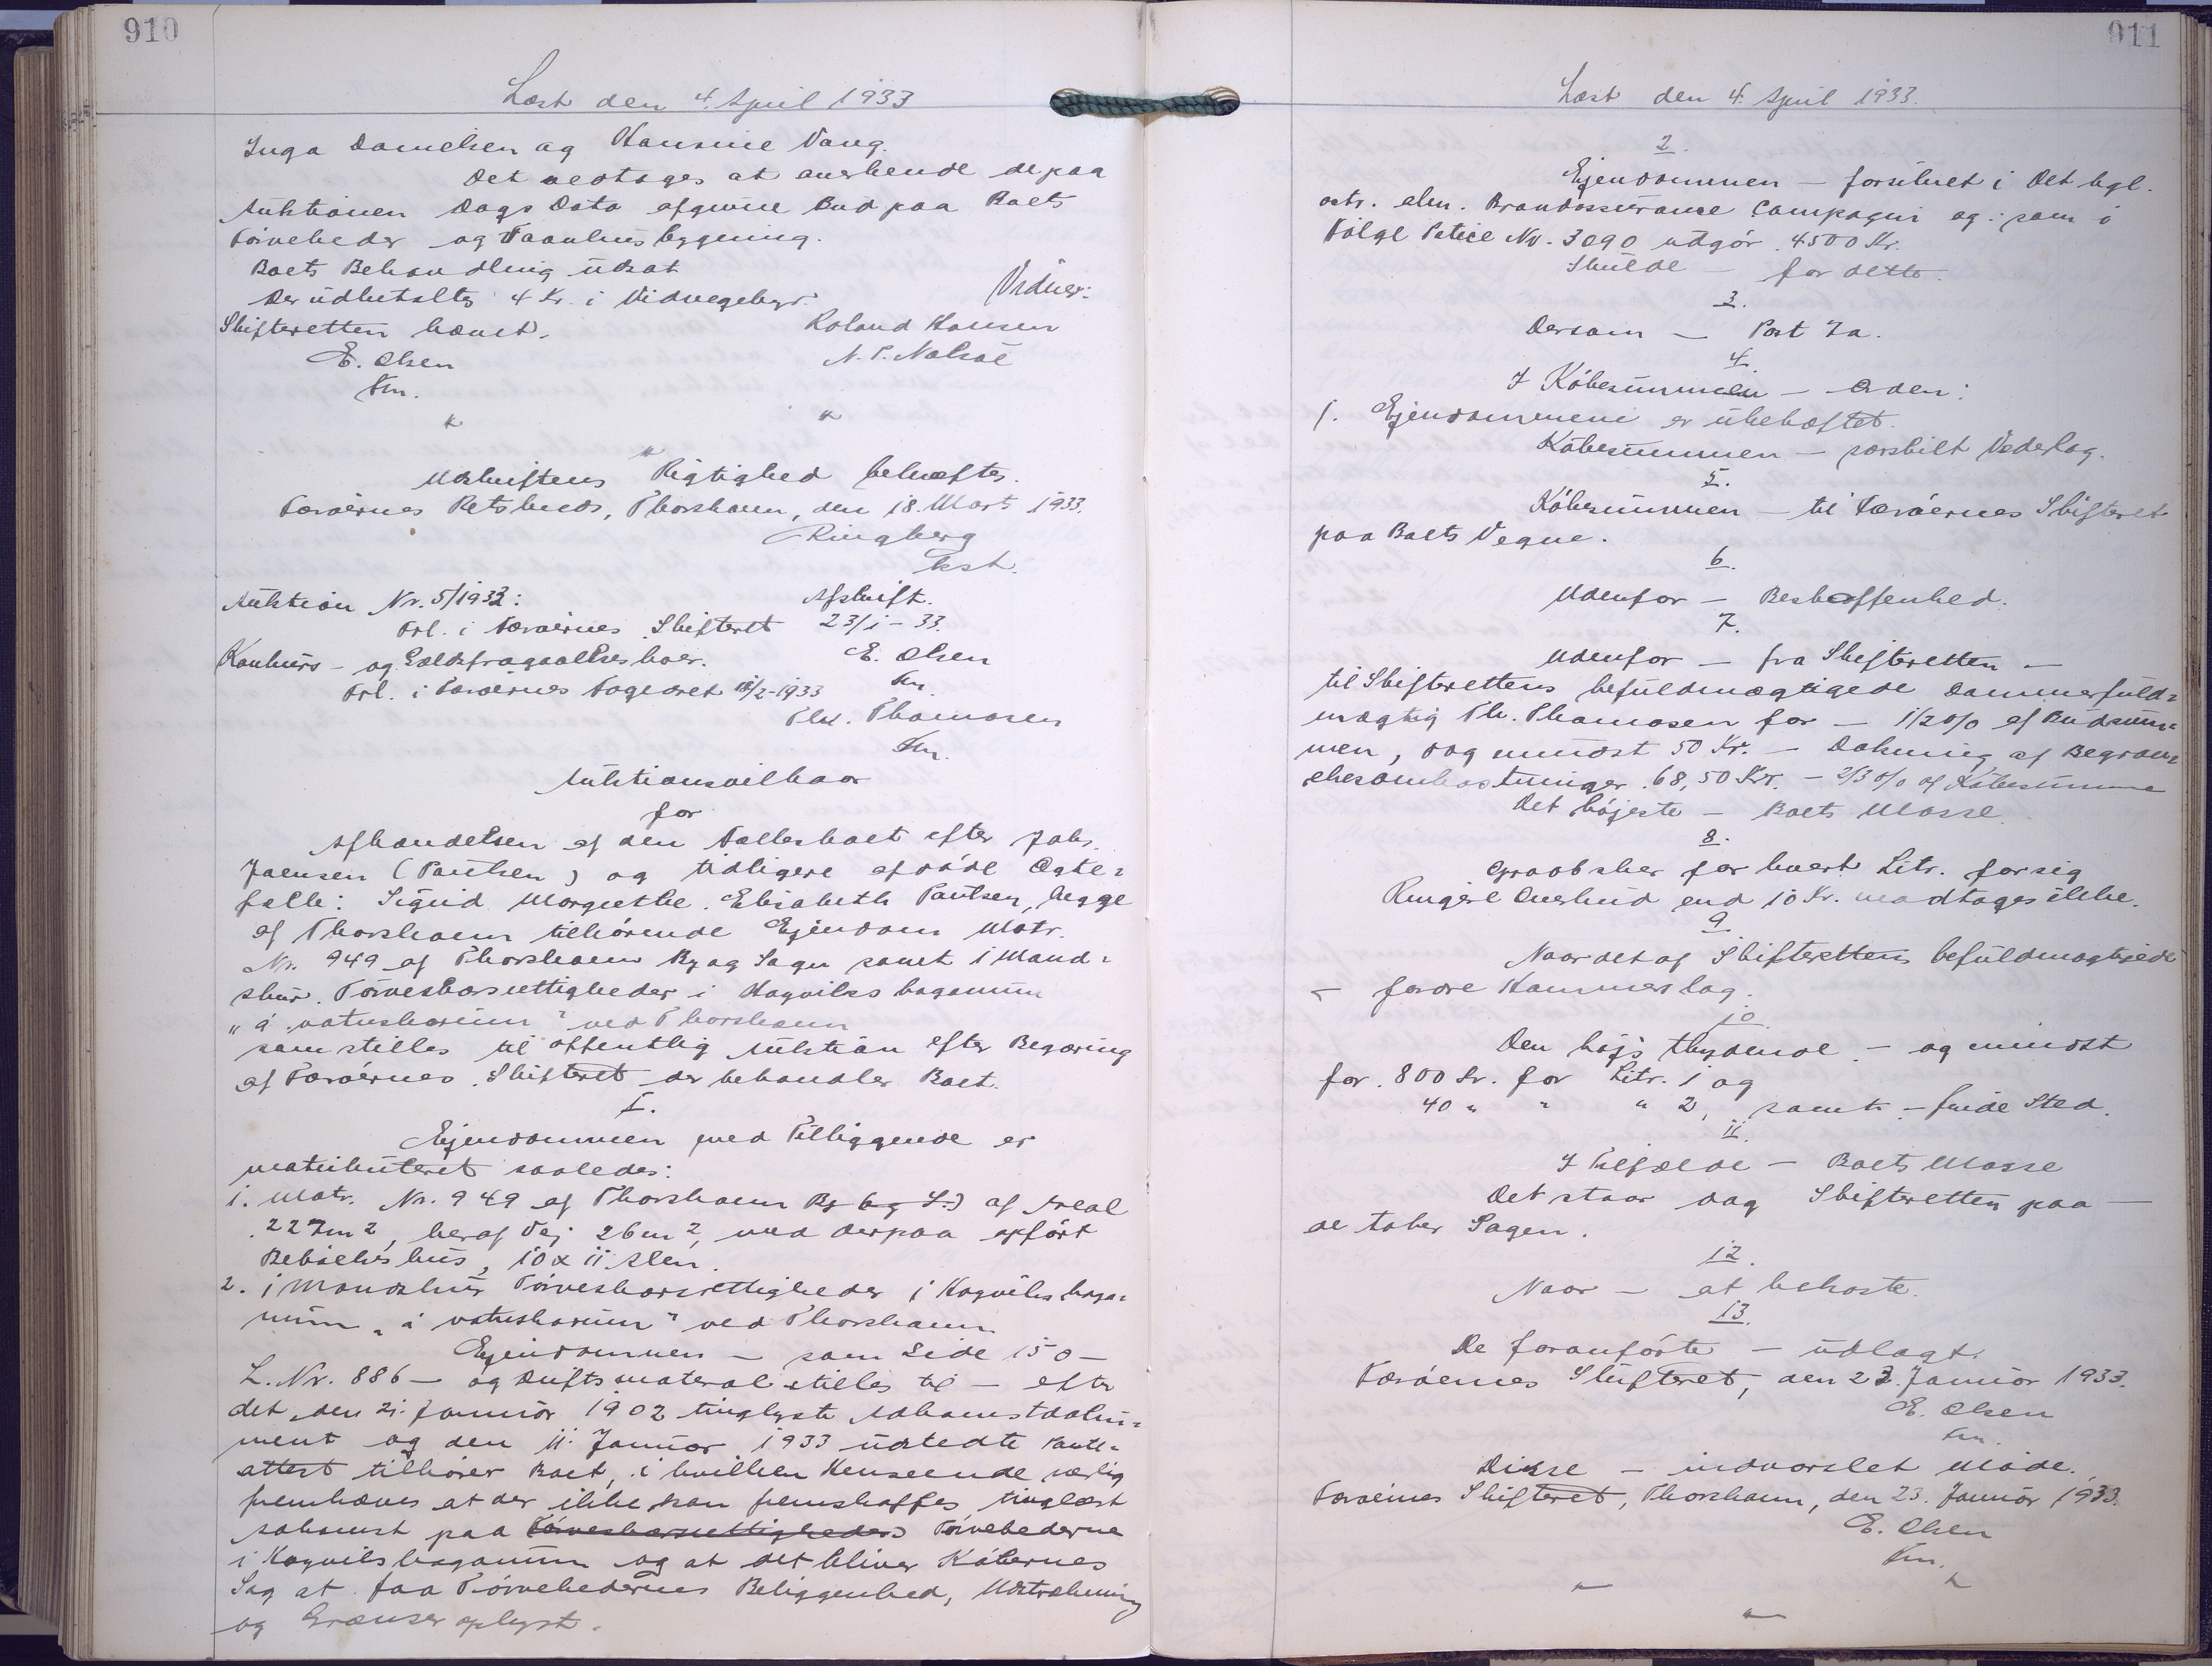 910
Læst den 4. April 1933
Inga Danielsen og Hansine Vang.
Det vedtoges at anerkende de paa
Auktionen Dags Dato afgivne Bud paa Boets
Tørveheder og Vaanhusbygning.
Boets Behandling udsat
Der udbetaltes 4 Kr. i Vidnegebyr.
Vidner:
Skifteretten hævet.
Roland Hansen
E. Olsen
N. P. Nolsøe
Fm.
Udskriftens Rigtighed bekræftes.
Færøernes Retskreds, Thorshavn, den 18. Mart 1933.
Ringberg
kst.
Auktion Nr. 5/1933:
Afskrift.
Frl. i Færøernes Skifteret 23/1-33.
Konkurs- og Gældsfragaaelsesboer.
E. Olsen
Fm.
Frl. i Færøernes Fogedret 18/2-1933
Thd. Thomasen
Fm.
Auktionsvilkaar
for
Afhændelsen af den Fællesboet efter Johs.
Joensen (Poulsen) og tidligere afdøde Ægte=
fælle: Sigrid Margrethe Elisabeth Poulsen, begge
af Thorshavn tilhørende Ejendom Matr.
Nr. 949 af Thorshavn By og Sogn samt 1 Mand=
skur Tørveskærsrettigheder i Hoyviks haganum
"á vatnskørum" ved Thorshavn
som stilles til offentlig Auktion efter Begæring
af Færøernes Skifteret der behandler Boet.
I.
Ejendommen med Tilliggende er
matrikuleret saaledes:
1. Matr. Nr. 949 af Thorshavn By og S.) af Areal
227 m2, heraf Vej 26 m2, med derpaa opført
Beboelseshus, 10 x 11 Alen.
2. 1 Mandskur Tørveskærsrettigheder i Hoyviks haga=
num "á vatnskørum" ved Thorshavn
Ejendommen – som Side 150 –
L. Nr. 886 – og Driftsmateral stilles til – efter
det den 21. Januar 1902 tinglyste Adkomstdoku=
ment og den 11. Januar 1933 udstedte Pante=
attest tilhører Boet, i hvilken Henseende særlig
fremhæves at der ikke kan fremskaffes tinglæst
Adkomst paa Tørveskærsrettigheders Tørvehederne
i Hoyvikshaganum og at det bliver Købernes
Sag at faa Tørvehedernes Beliggenhed, Udstrækning
og Grænser oplyst.
911
Læst den 4. April 1933.
2.
Ejendommen – forsikret i Det kgl.
octr. alm. Brandassurance Compagni og som i
Følge Police Nr. 3090 udgør 4500 Kr.
Skulde – for dette.
3.
Dersom – Post 7a.
4.
I Købesummen – Orden:
1. Ejendommene er ubehæftet.
Købesummen – særskilt Vederlag.
5.
Købesummen – til Færøernes Skifteret
paa Boets Vegne.
6.
Udenfor – Beskaffenhed.
7.
Udenfor – fra Skifteretten –
til Skifterettens befuldmægtigede Dommerfuld=
mægtig Th. Thomasen for – 1/2 0/0 af Budsum=
men, dog mindst 50 Kr. – Dækning af Begræv=
elsesomkostninger 68,50 Kr. – 2/3 0/0 af Købesumme
Det højeste – Boets Masse.
8.
Opraab sker for hvert Litr. for sig
Ringere Overbud end 10 Kr. modtages ikke.
9.
Naar det af Skifterettens befuldmægtigede
– fordre Hammerslag.
10.
Den højstbydende – og mindst
for 800 Kr. for Litr. 1 og
40 " " " 2, samt – finde Sted.
11.
I Tilfælde – Boets Masse
Det staar dog Skifteretten paa –
de taber Sagen.
12.
Naar – at bekoste.
13.
De foranførte – udlagt.
Færøernes Skifteret, den 23. Januar 1933.
E. Olsen
Fm.
Disse – indvarslet Møde.
Færøernes Skifteret, Thorshavn, den 23. Januar 1933.
E. Olsen
Fm.